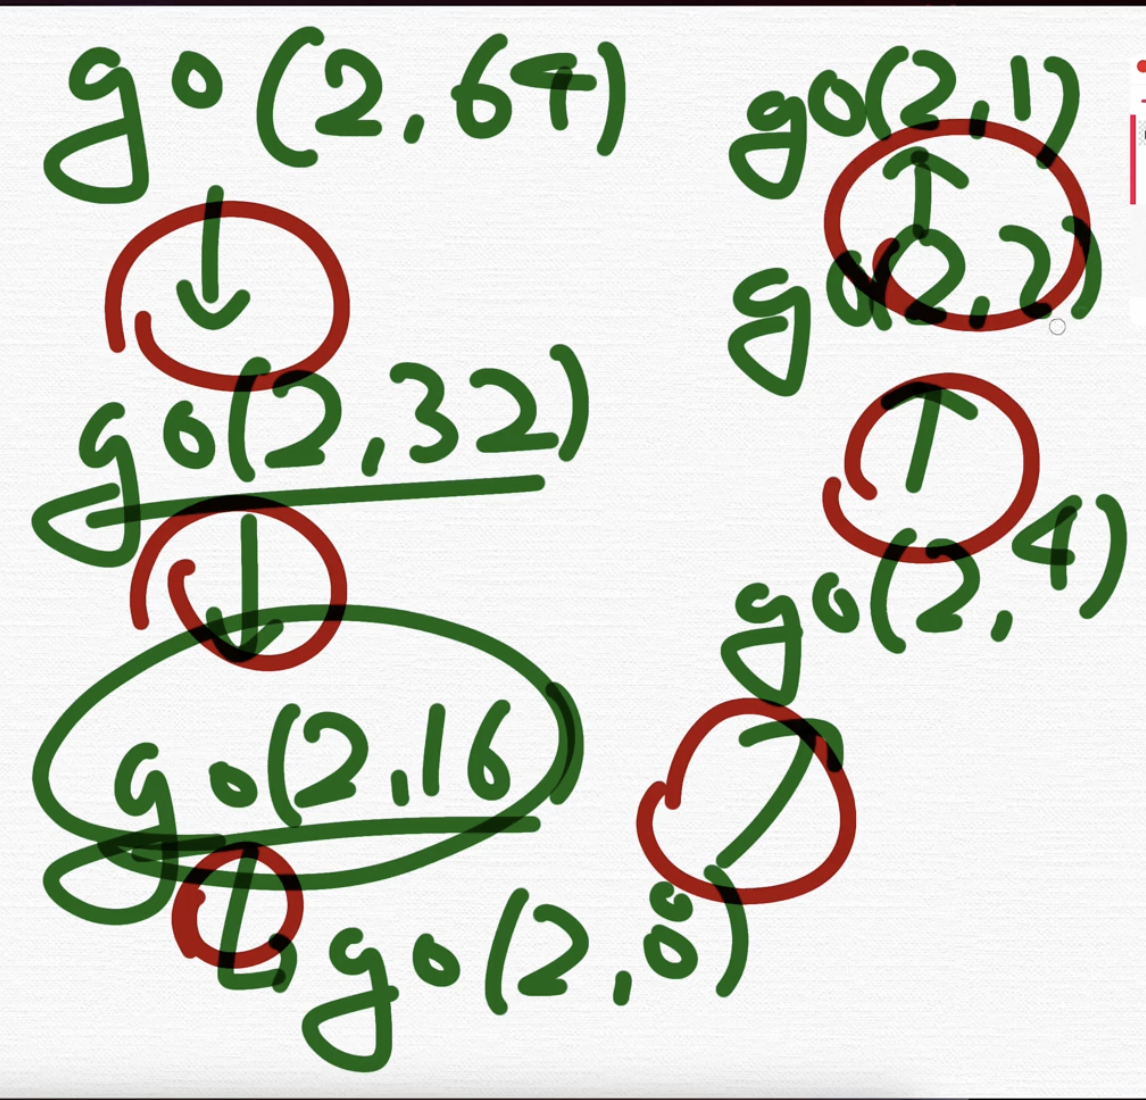 go(2,64)
go(2,32)
go(2,16)
go(2,8)
go(2,4)
go(2,2)
go(2,1)